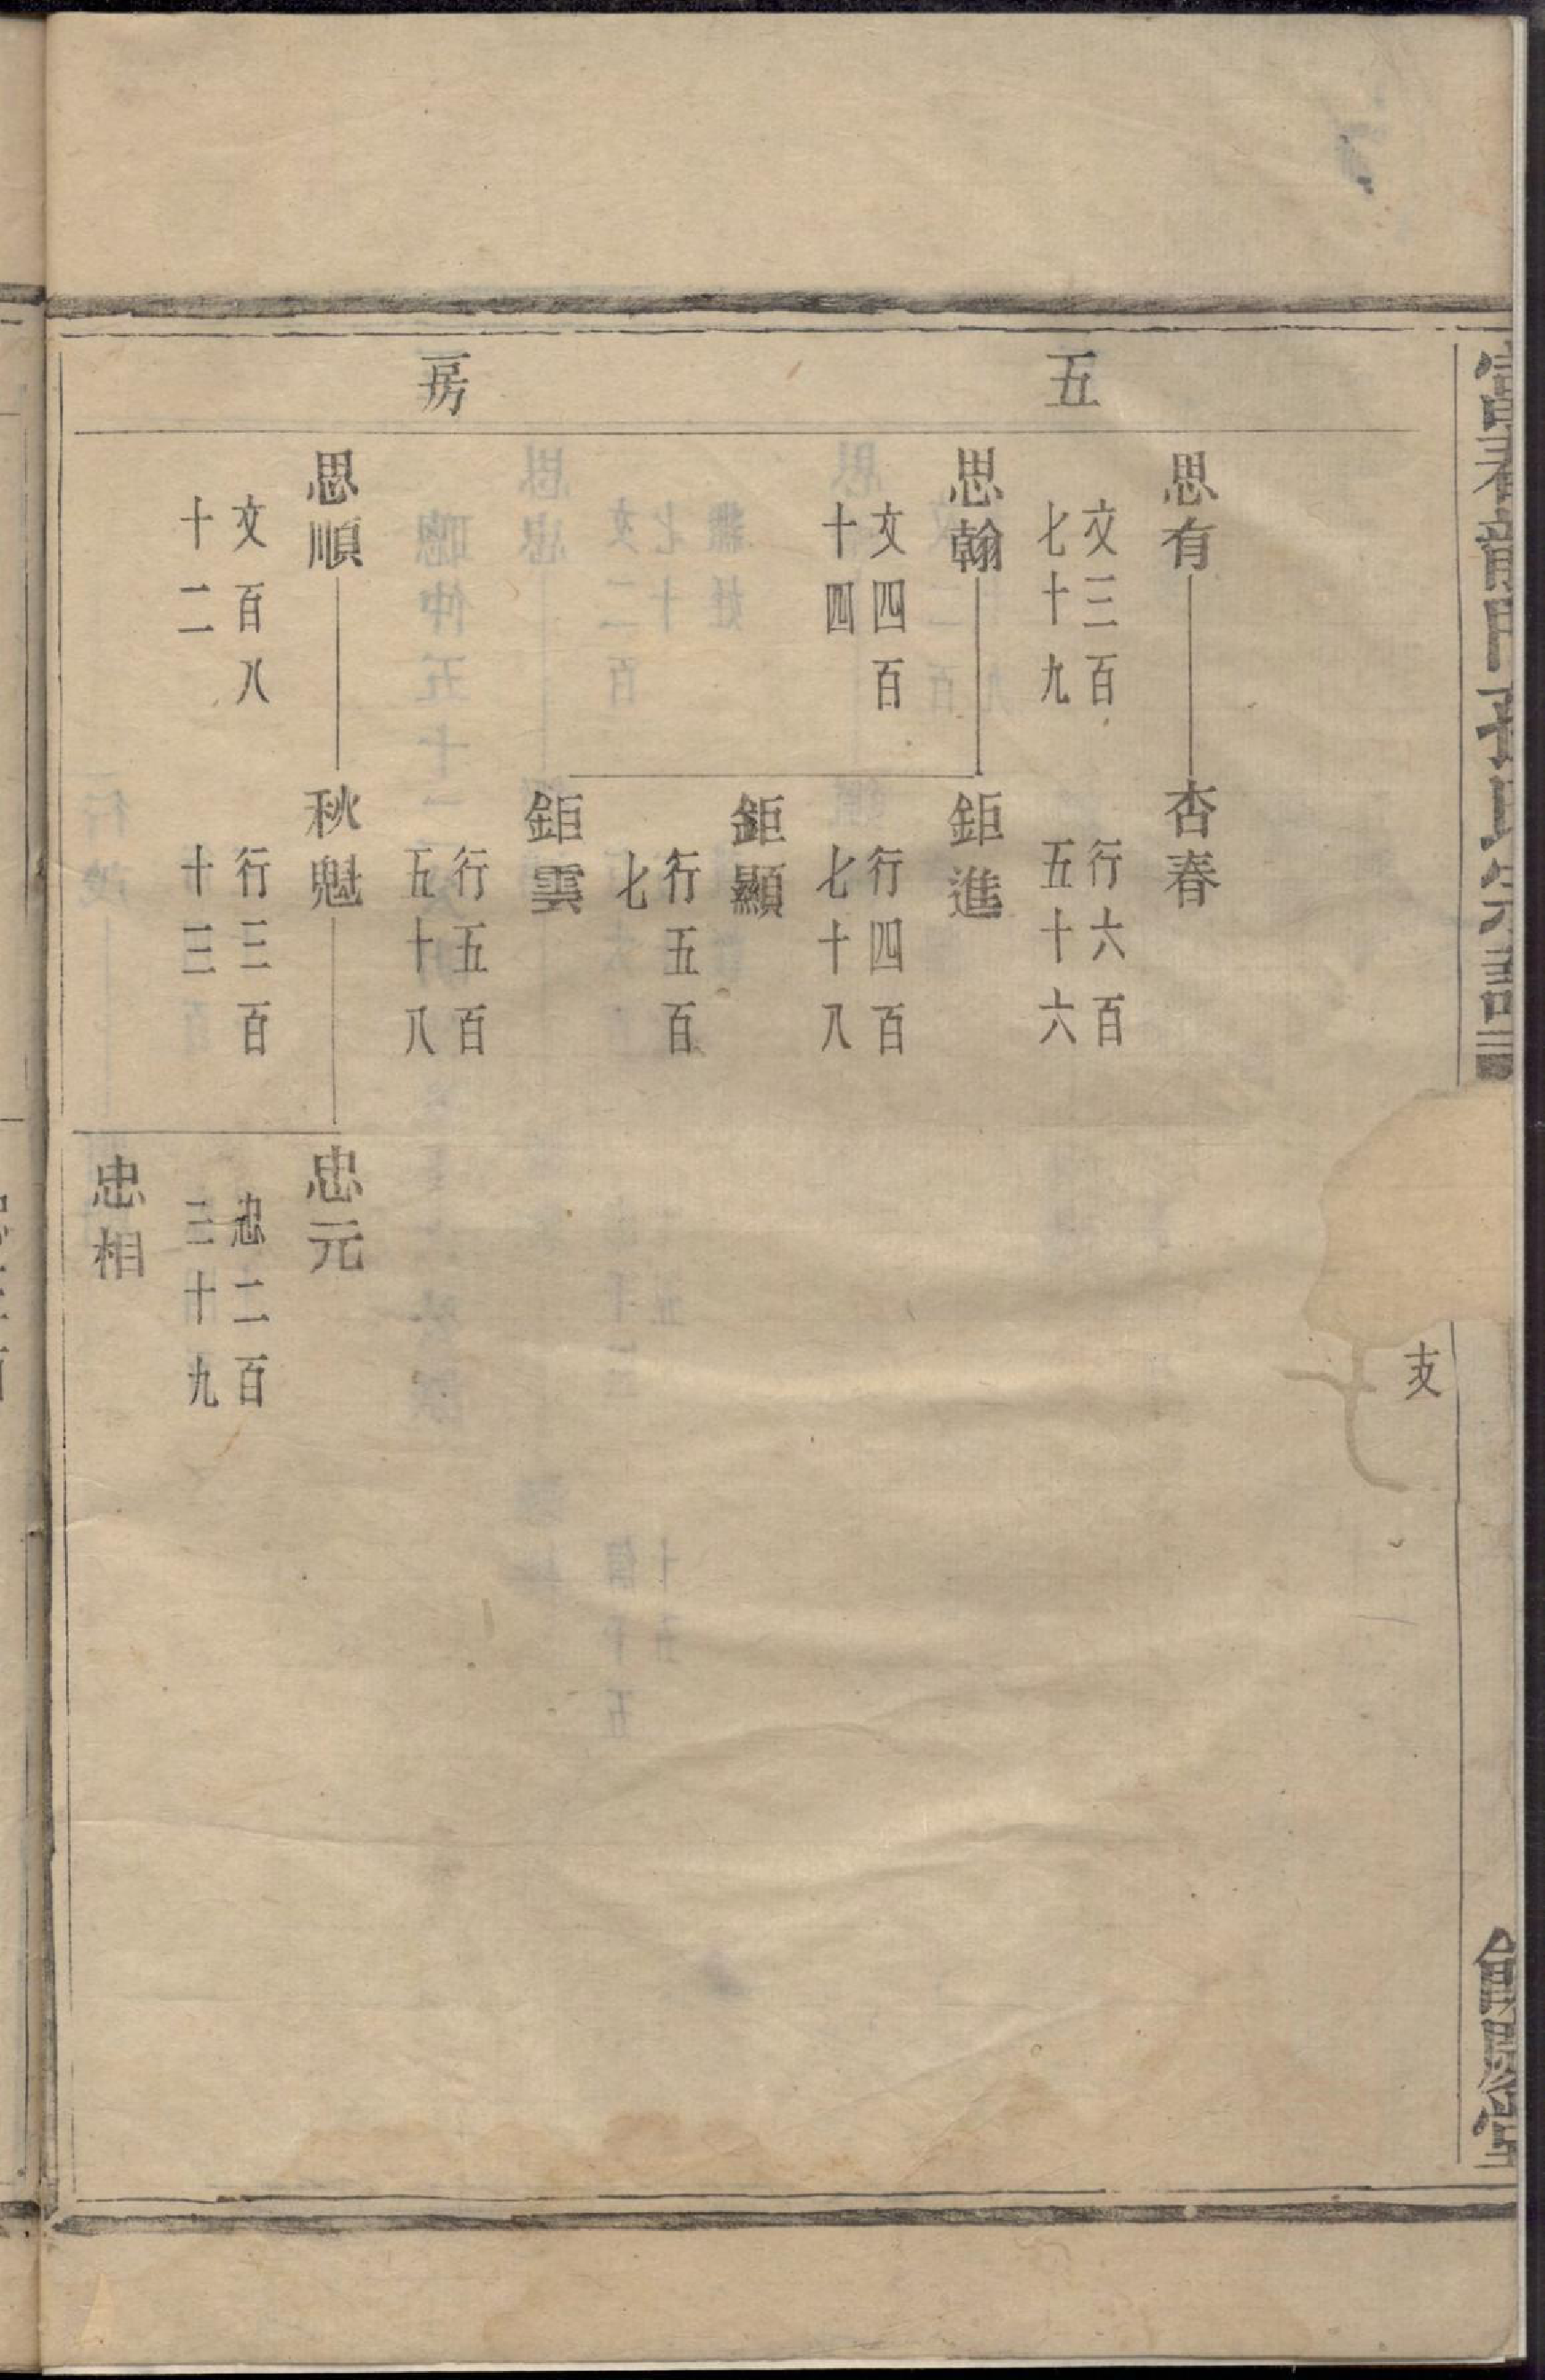 五房
思有
文三百
七十九
杏春
行六百
五十六
思翰
文四百
十四
鉅進
行四百
七十八
鉅顯
行五百
七
鉅雲
行五百
五十八
思順
文百八
十二
秋魁
行三百
十三
忠元
忠二百
三十九
忠相